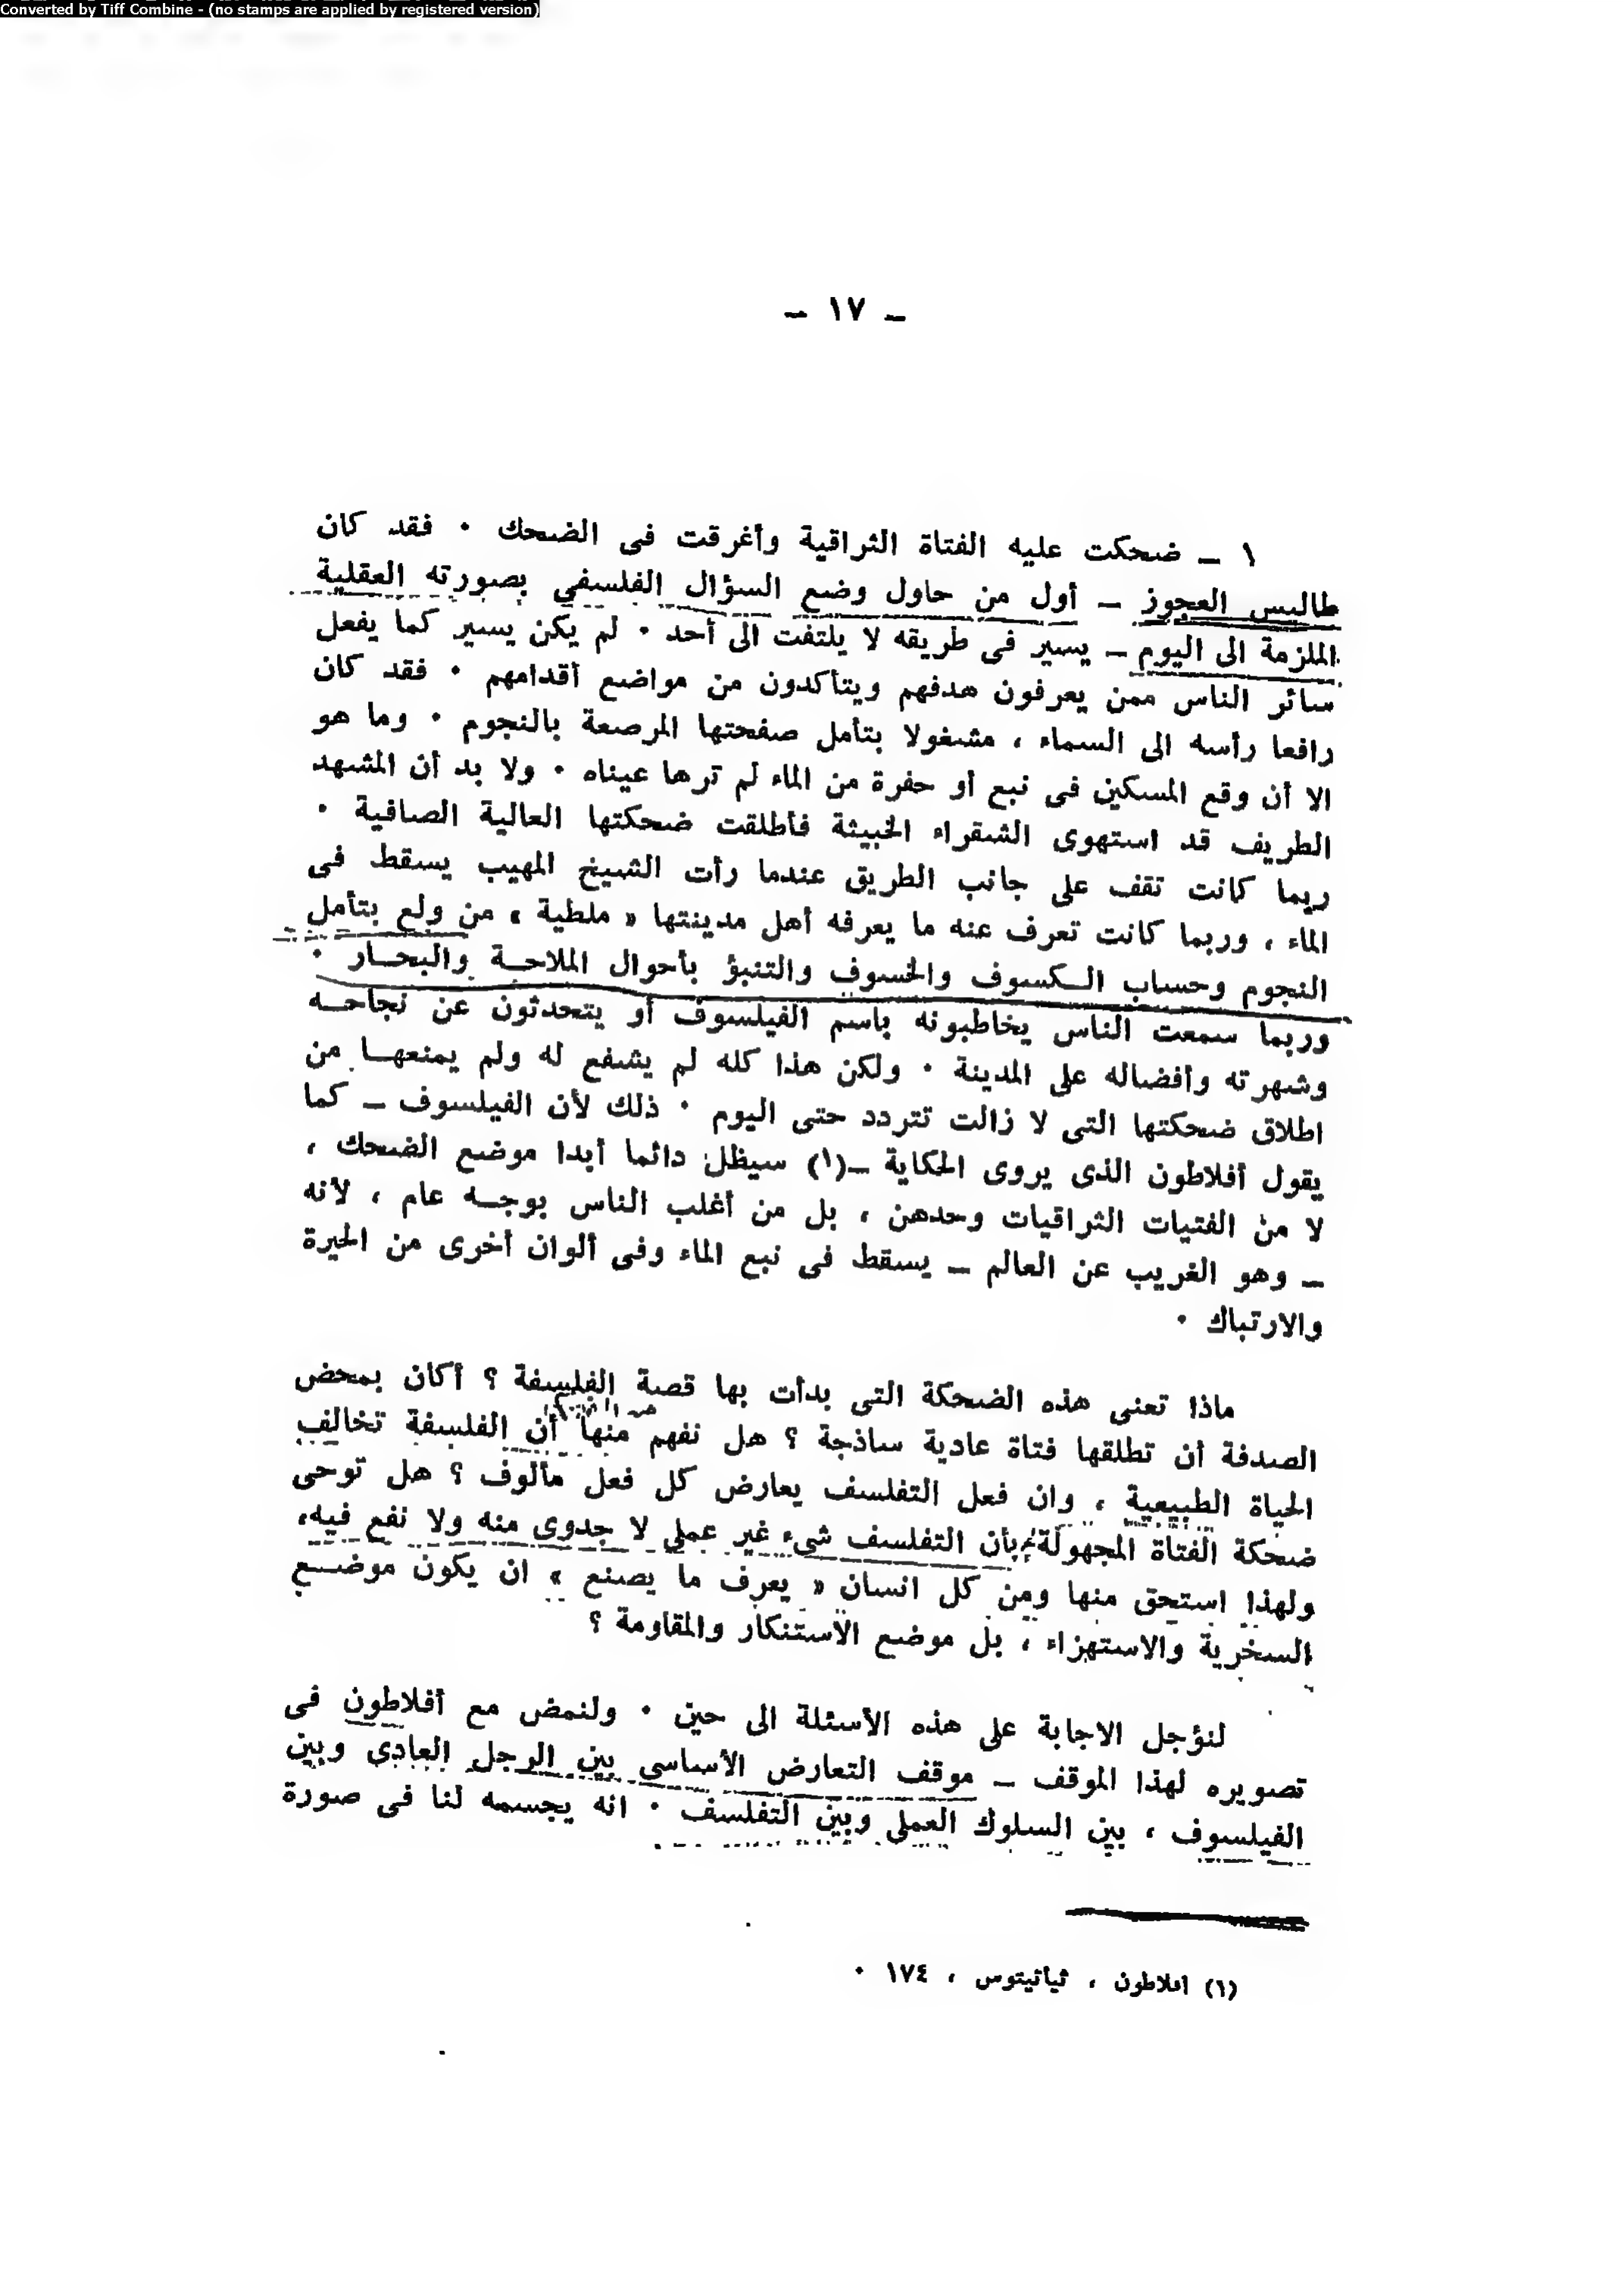 Converted by Tiff Combine - (no stamps are applied by registered version)
ـ ١٧ ـ
١ ـ ضحكت عليه الفتاة الثراقية وأغرقت فى الضحك ٠ فقد كان
طاليس العجوز ـ أول من حاول وضع السؤال الفلسفي بصورته العقلية
الملزمة الى اليوم ـ يسير فى طريقه لا يلتفت الى أحد ٠ لم يكن يسير كما يفعل
سائر الناس ممن يعرفون هدفهم ويتأكدون من مواضع أقدامهم ٠ فقد كان
رافعا رأسه الى السماء ، مشغولا بتأمل صفحتها المرصعة بالنجوم ٠ وما هو
الا أن وقع المسكين فى نبع أو حفرة من الماء لم ترها عيناه ٠ ولا بد أن المشهد
الطريف قد استهوى الشقراء الخبيثة فأطلقت ضحكتها العالية الصافية ٠
ربما كانت تقف على جانب الطريق عندما رأت الشيخ المهيب يسقط فى
الماء ، وربما كانت تعرف عنه ما يعرفه أهل مدينتها « ملطية » من ولع بتأمل
النجوم وحساب الـكسوف والخسوف والتنبؤ بأحوال الملاحـة والبحـار ٠
وربما سمعت الناس يخاطبونه باسم الفيلسوف أو يتحدثون عن نجاحـه
وشهرته وأفضاله على المدينة ٠ ولكن هذا كله لم يشفع له ولم يمنعهـا من
اطلاق ضحكتها التى لا زالت تتردد حتى اليوم ٠ ذلك لأن الفيلسوف ـ كما
يقول أفلاطون الذى يروى الحكاية ـ(١) سيظل دائما أبدا موضع الضحك ،
لا من الفتيات الثراقيات وحدهن ، بل من أغلب الناس بوجـه عام ، لأنه
ـ وهو الغريب عن العالم ـ يسقط فى نبع الماء وفى ألوان أخرى من الحيرة
والارتباك ٠
ماذا تعنى هذه الضحكة التى بدأت بها قصة الفلسفة ؟ أكان بمحض
الصدفة أن تطلقها فتاة عادية ساذجة ؟ هل نفهم منها أن الفلسفة تخالف
الحياة الطبيعية ، وان فعل التفلسف يعارض كل فعل مألوف ؟ هل توحى
ضحكة الفتاة المجهولة بأن التفلسف شىء غير عملى لا جدوى منه ولا نفع فيه،
ولهذا استحق منها ومن كل انسان « يعرف ما يصنع » ان يكون موضـع
السخرية والاستهزاء ، بل موضع الاستنكار والمقاومة ؟
لنؤجل الاجابة على هذه الأسئلة الى حين ٠ ولنمض مع أفلاطون فى
تصويره لهذا الموقف ـ موقف التعارض الأساسى بين الرجل العادى وبين
الفيلسوف ، بين السلوك العملى وبين التفلسف ٠ انه يجسمه لنا فى صورة
(١) افلاطون ، ثياتيتوس ، ١٧٤ ٠